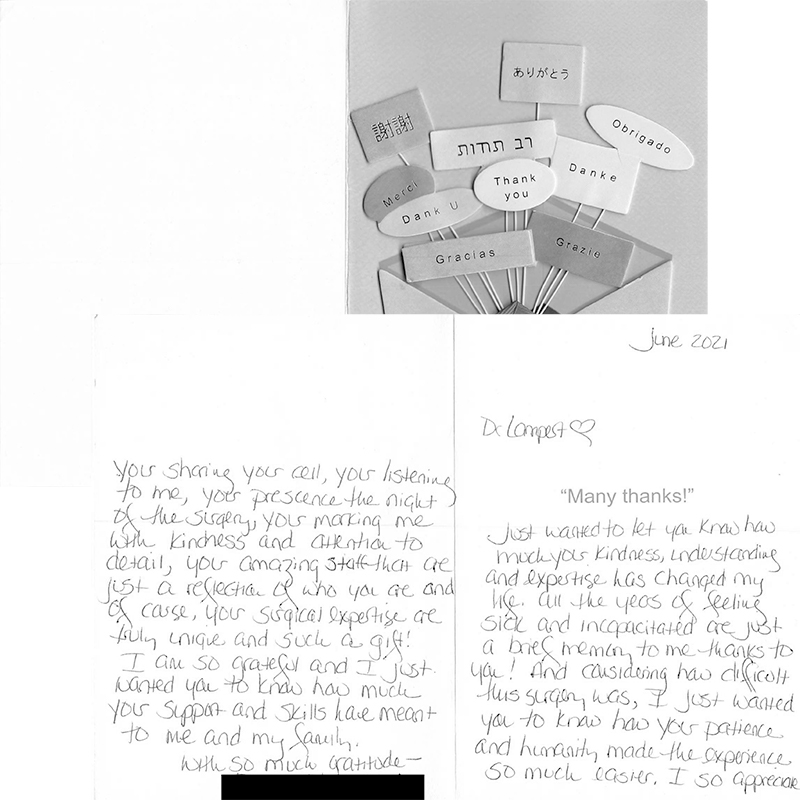 ありがとう
謝謝
Obrigado
רב תודות
Danke
Thank
you
Merci
Dank U
Gracias
Grazie
June 2021
Dr Lampert♡
“Many thanks!”
Just wanted to let you know how
much your kindness, understanding
and expertise has changed my
life. All the years of feeling
sick and incapacitated are just
a brief memory to me thanks to
you! And considering how difficult
this surgery was, I just wanted
you to know how your patience
and humanity made the experience
so much easier. I so appreciate
your sharing your cell, your listening
to me, your prescence the night
of the surgery, your marking me
with kindness and attention to
detail, your amazing staff that are
just a reflection of who you are and
of course, your surgical expertise are
truly unique and such a gift!
I am so grateful and I just
wanted you to know how much
your support and skills have meant
to me and my family.
With so much gratitude—